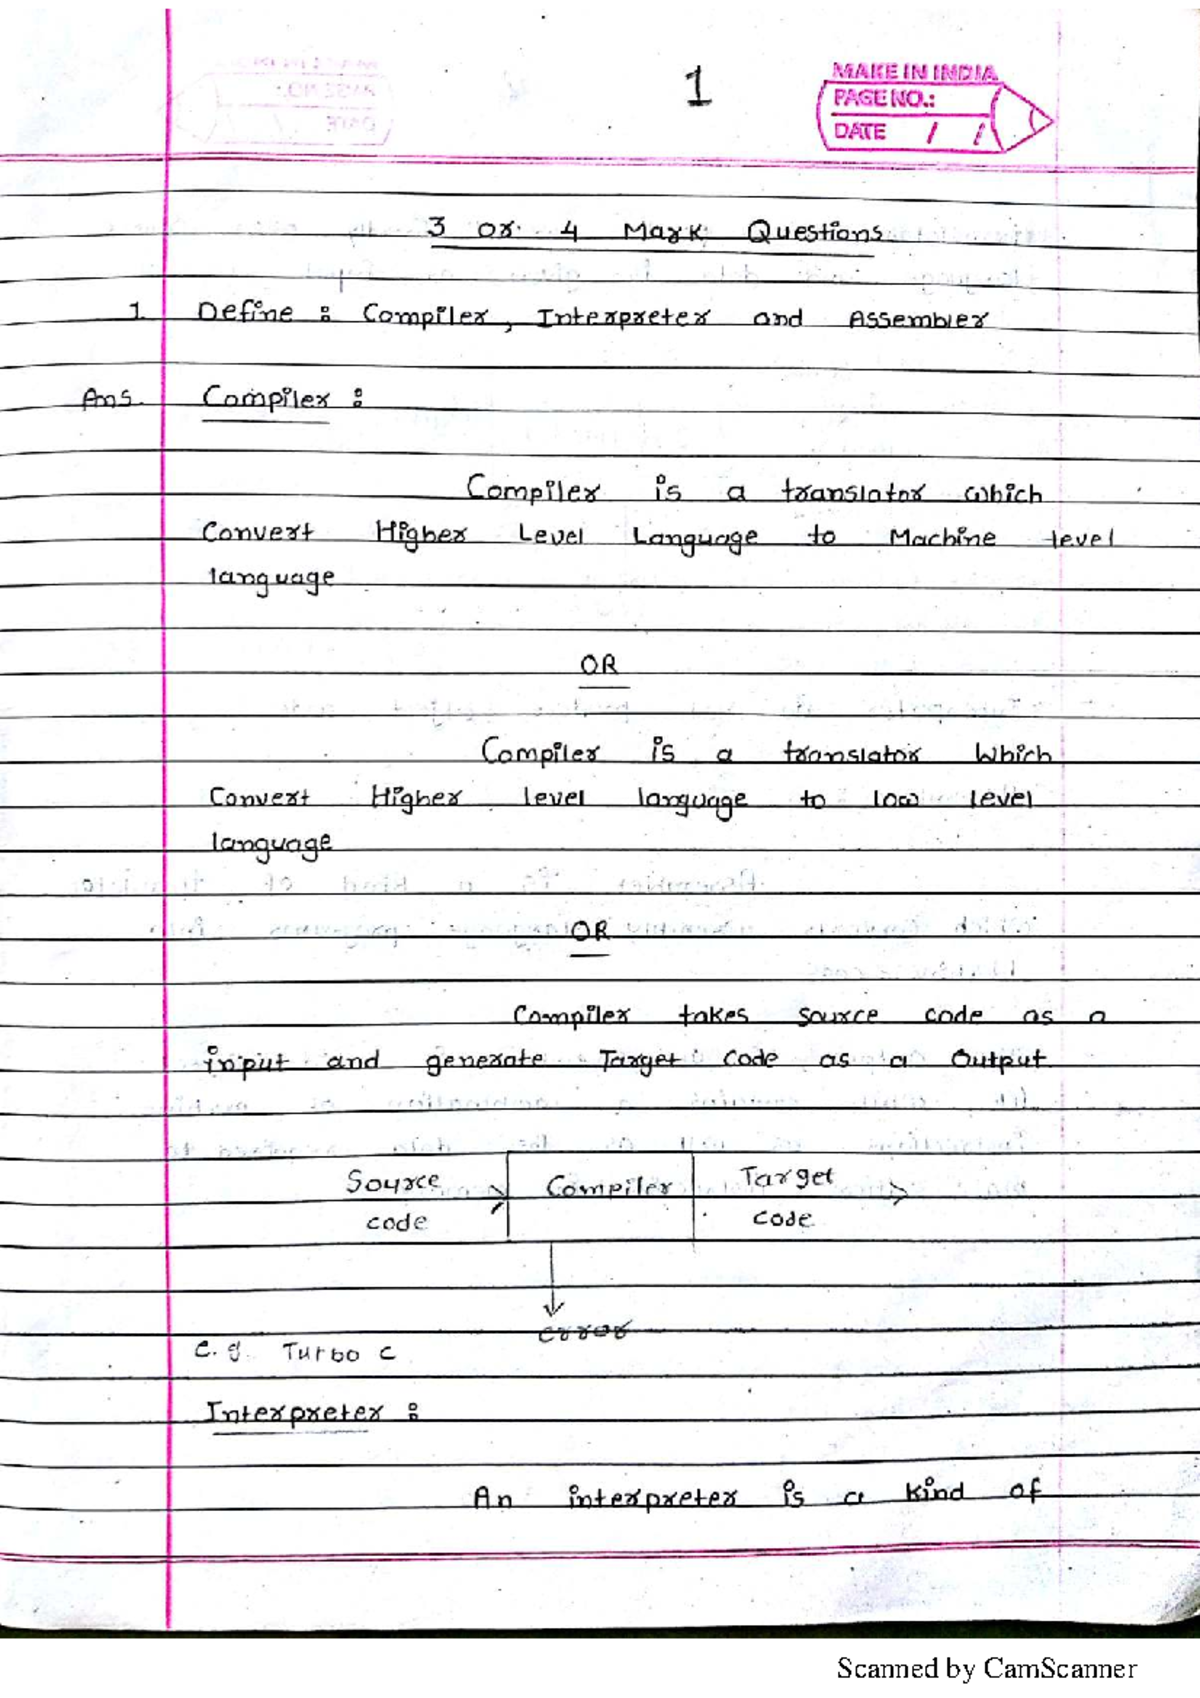 1
MAKE IN INDIA
PAGE NO.:
DATE / /
3 or 4 Mark Questions
1. Define : Compiler, Interpreter and Assembler
Ans. Compiler :
Compiler is a translator which
Convert Higher Level Language to Machine level
language
OR
Compiler is a translator which
Convert Higher level language to low level
language
OR
Compiler takes source code as a
input and generate Target Code as a Output
Source code
Compiler
Target code
error
e.g. Turbo C
Interpreter :
An interpreter is a kind of
Scanned by CamScanner